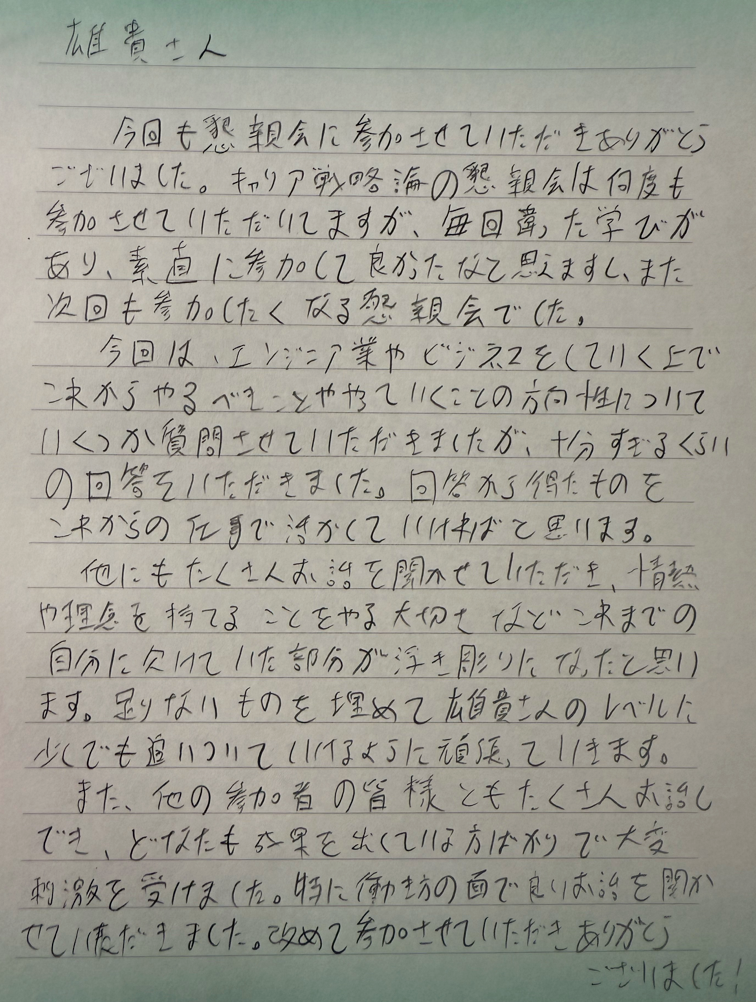 雄貴さん
今回も懇親会に参加させていただきありがとう
ございました。キャリア戦略論の懇親会は何度も
参加させていただいてますが、毎回違った学びが
あり、素直に参加して良かったなと思えますし、また
次回も参加したくなる懇親会でした。
今回は、エンジニア業やビジネスをしていく上で
これからやるべきことややっていくことの方向性について
いくつか質問させていただきましたが、十分すぎるくらい
の回答をいただきました。回答から得たものを
これからの仕事で活かしていければと思います。
他にもたくさんお話を聞かせていただき、情熱
や理念を持てることをやる大切さなどこれまでの
自分に欠けていた部分が浮き彫りになったと思い
ます。足りないものを埋めて雄貴さんのレベルに
少しでも追いついていけるように頑張っていきます。
また、他の参加者の皆様ともたくさんお話し
でき、どなたも成果を出している方ばかりで大変
刺激を受けました。特に働き方の面で良いお話を聞か
せていただきました。改めて参加させていただきありがとう
ございました!